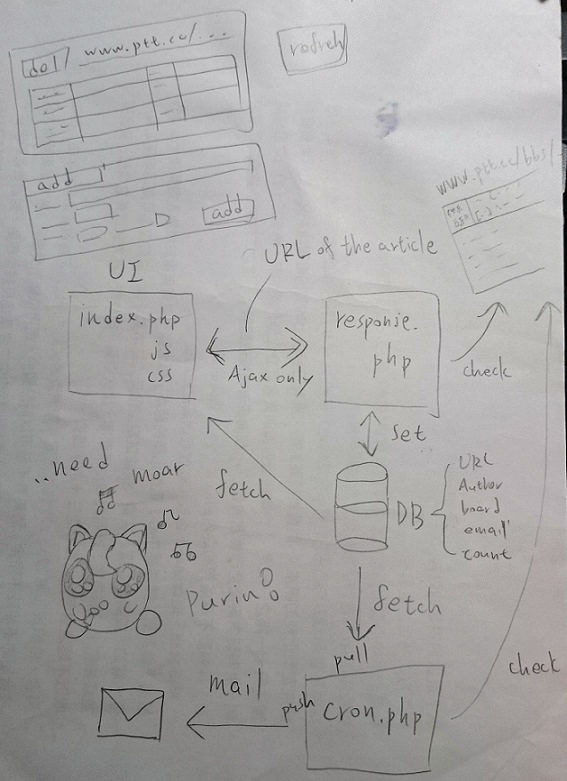 del
www.ptt.cc/...
add
add
www.ptt.cc/bbs/
URL of the article
UI
index.php
js
css
Ajax only
response.
php
check
set
fetch
DB
URL
Author
board
email
count
..need
moar
Purin
fetch
pull
push
cron.php
mail
check